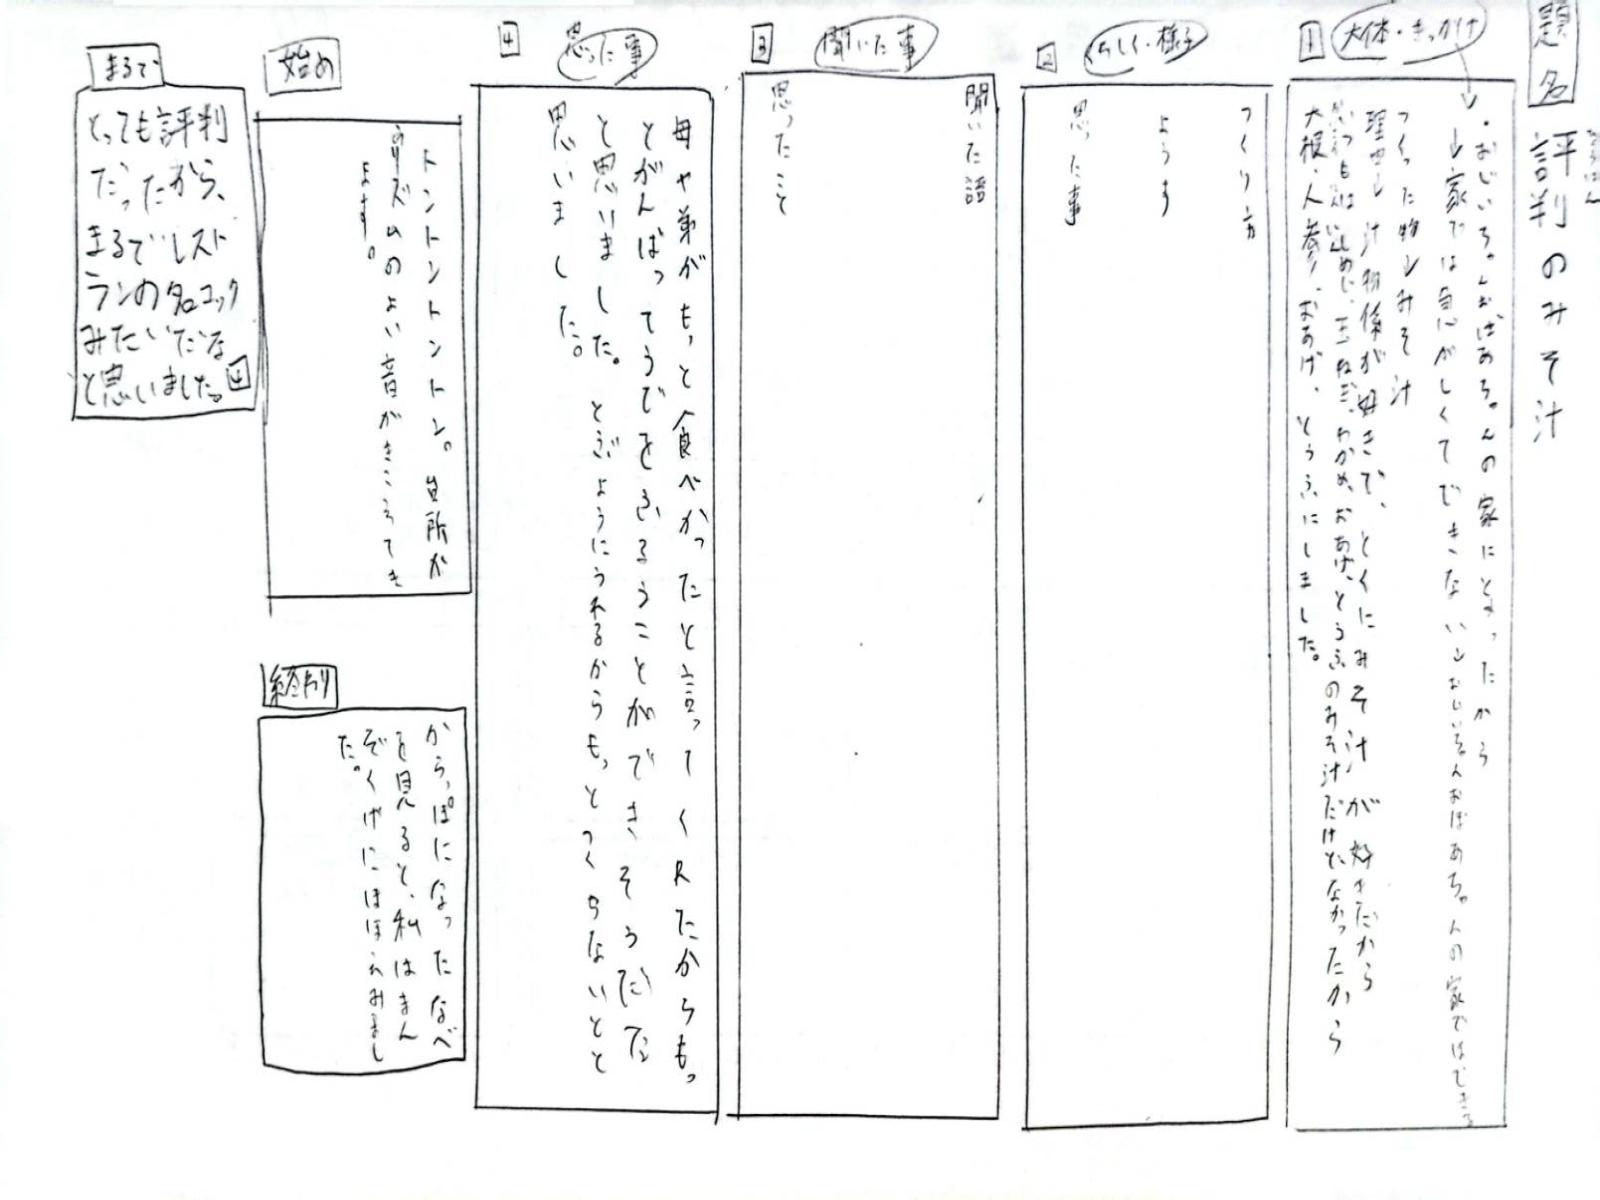 題名
評判のみそ汁
ひょうばん
1
大体・きっかけ
・おじいちゃんおばあちゃんの家にとまったから
→家では急がしくてできない→おじいちゃんおばあちゃんの家ではできる
つくった物→みそ汁
理由→汁物係が好きで、とくにみそ汁が好きだから
いつもは、しめじ、玉ねぎ、わかめ、おあげ、とうふのみそ汁だけどなかったから
大根、人参、おあげ、とうふにしました。
2
くわしく・様子
つくり方
ようす
思った事
3
聞いた事
聞いた語
思ったこと
4
思った事
母や弟がもっと食べかったと言ってくれたからもっ
とがんばってうでをふるうことができそうだな
と思いました。とぶようにうれるからもっとつくらないとと
思いました。
始め
トントントントン。台所か
らリズムのよい音がきこえてき
ます。
終わり
からっぽになったなべ
を見ると、私はまん
ぞくげにほほえみまし
た。
まるで
とっても評判
だったから、
まるでレスト
ランの名コック
みたいだな
と思いました。4